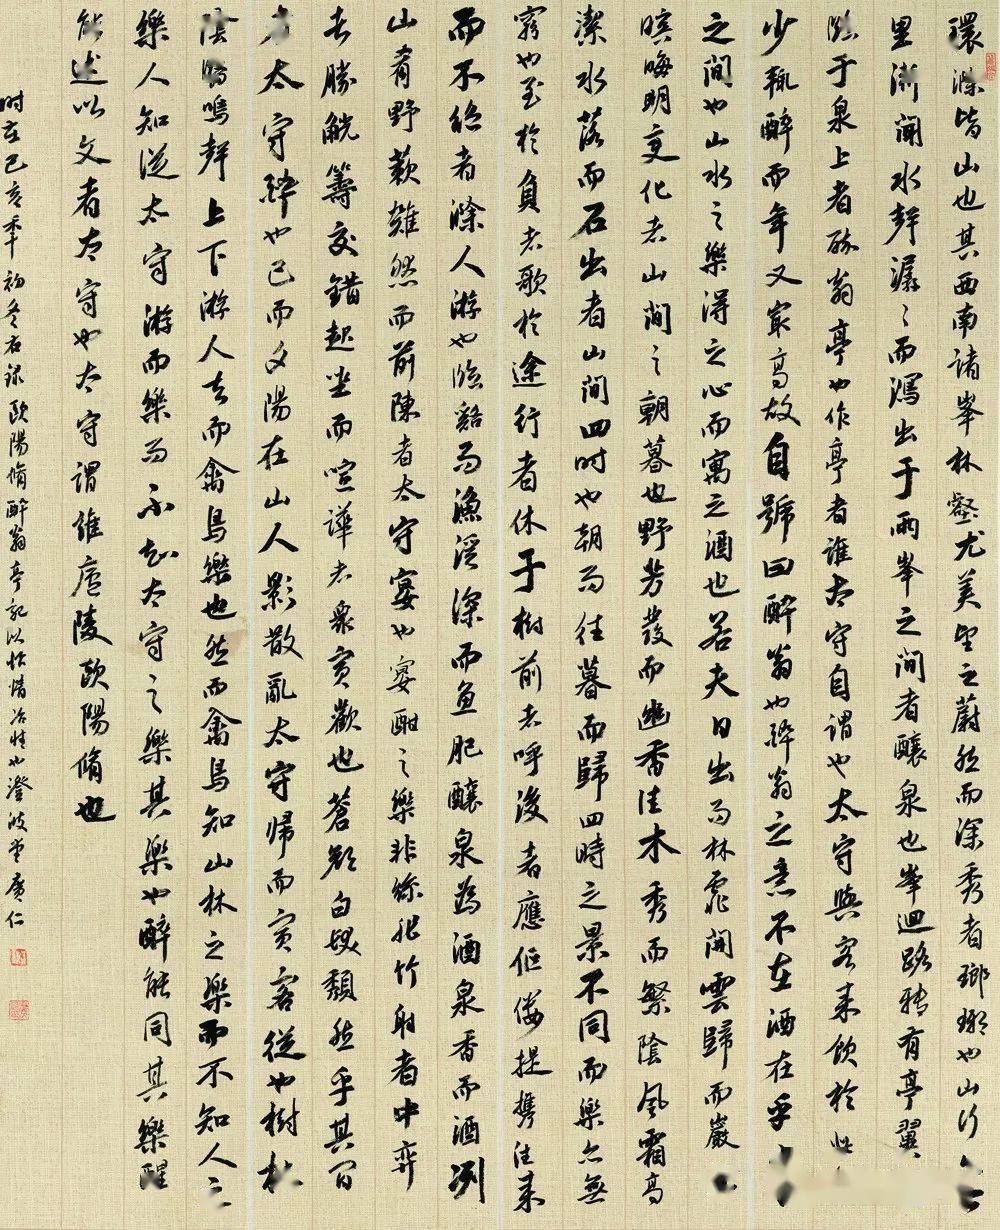 環滁皆山也其西南諸峯林壑尤美望之蔚然而深秀者瑯琊也山行六
里漸聞水聲潺〻而瀉出于兩峯之間者釀泉也峯迴路轉有亭翼
臨于泉上者醉翁亭也作亭者誰太守自謂也太守與客来飲於此
少輒醉而年又最高故自號曰醉翁也醉翁之意不在酒在乎山
之間也山水之樂得之心而寓之酒也若夫日出而林霏開雲歸而巖
暝晦明变化者山間之朝暮也野芳發而幽香佳木秀而繁陰風霜高
潔水落而石出者山間四时也朝而往暮而歸四時之景不同而樂亦無
窮也至於負者歌於途行者休于樹前者呼後者應傴僂提携往来
而不絕者滁人游也臨谿而漁溪深而鱼肥釀泉為酒泉香而酒洌
山肴野蔌雜然而前陳者太守宴也宴酣之樂非絲非竹射者中弈
者勝觥籌交錯起坐而喧譁者衆賓歡也蒼顏白髮頹然乎其间
者太守醉也已而夕陽在山人影散亂太守歸而賓客従也樹林
陰翳鳴聲上下游人去而禽鳥樂也然而禽鳥知山林之樂而不知人之
樂人知從太守游而樂而不知太守之樂其樂也醉能同其樂醒
能述以文者太守也太守謂誰廬陵歐陽脩也
时在己亥年初冬右录歐陽脩醉翁亭記以怡情冶性也澄波堂廣仁